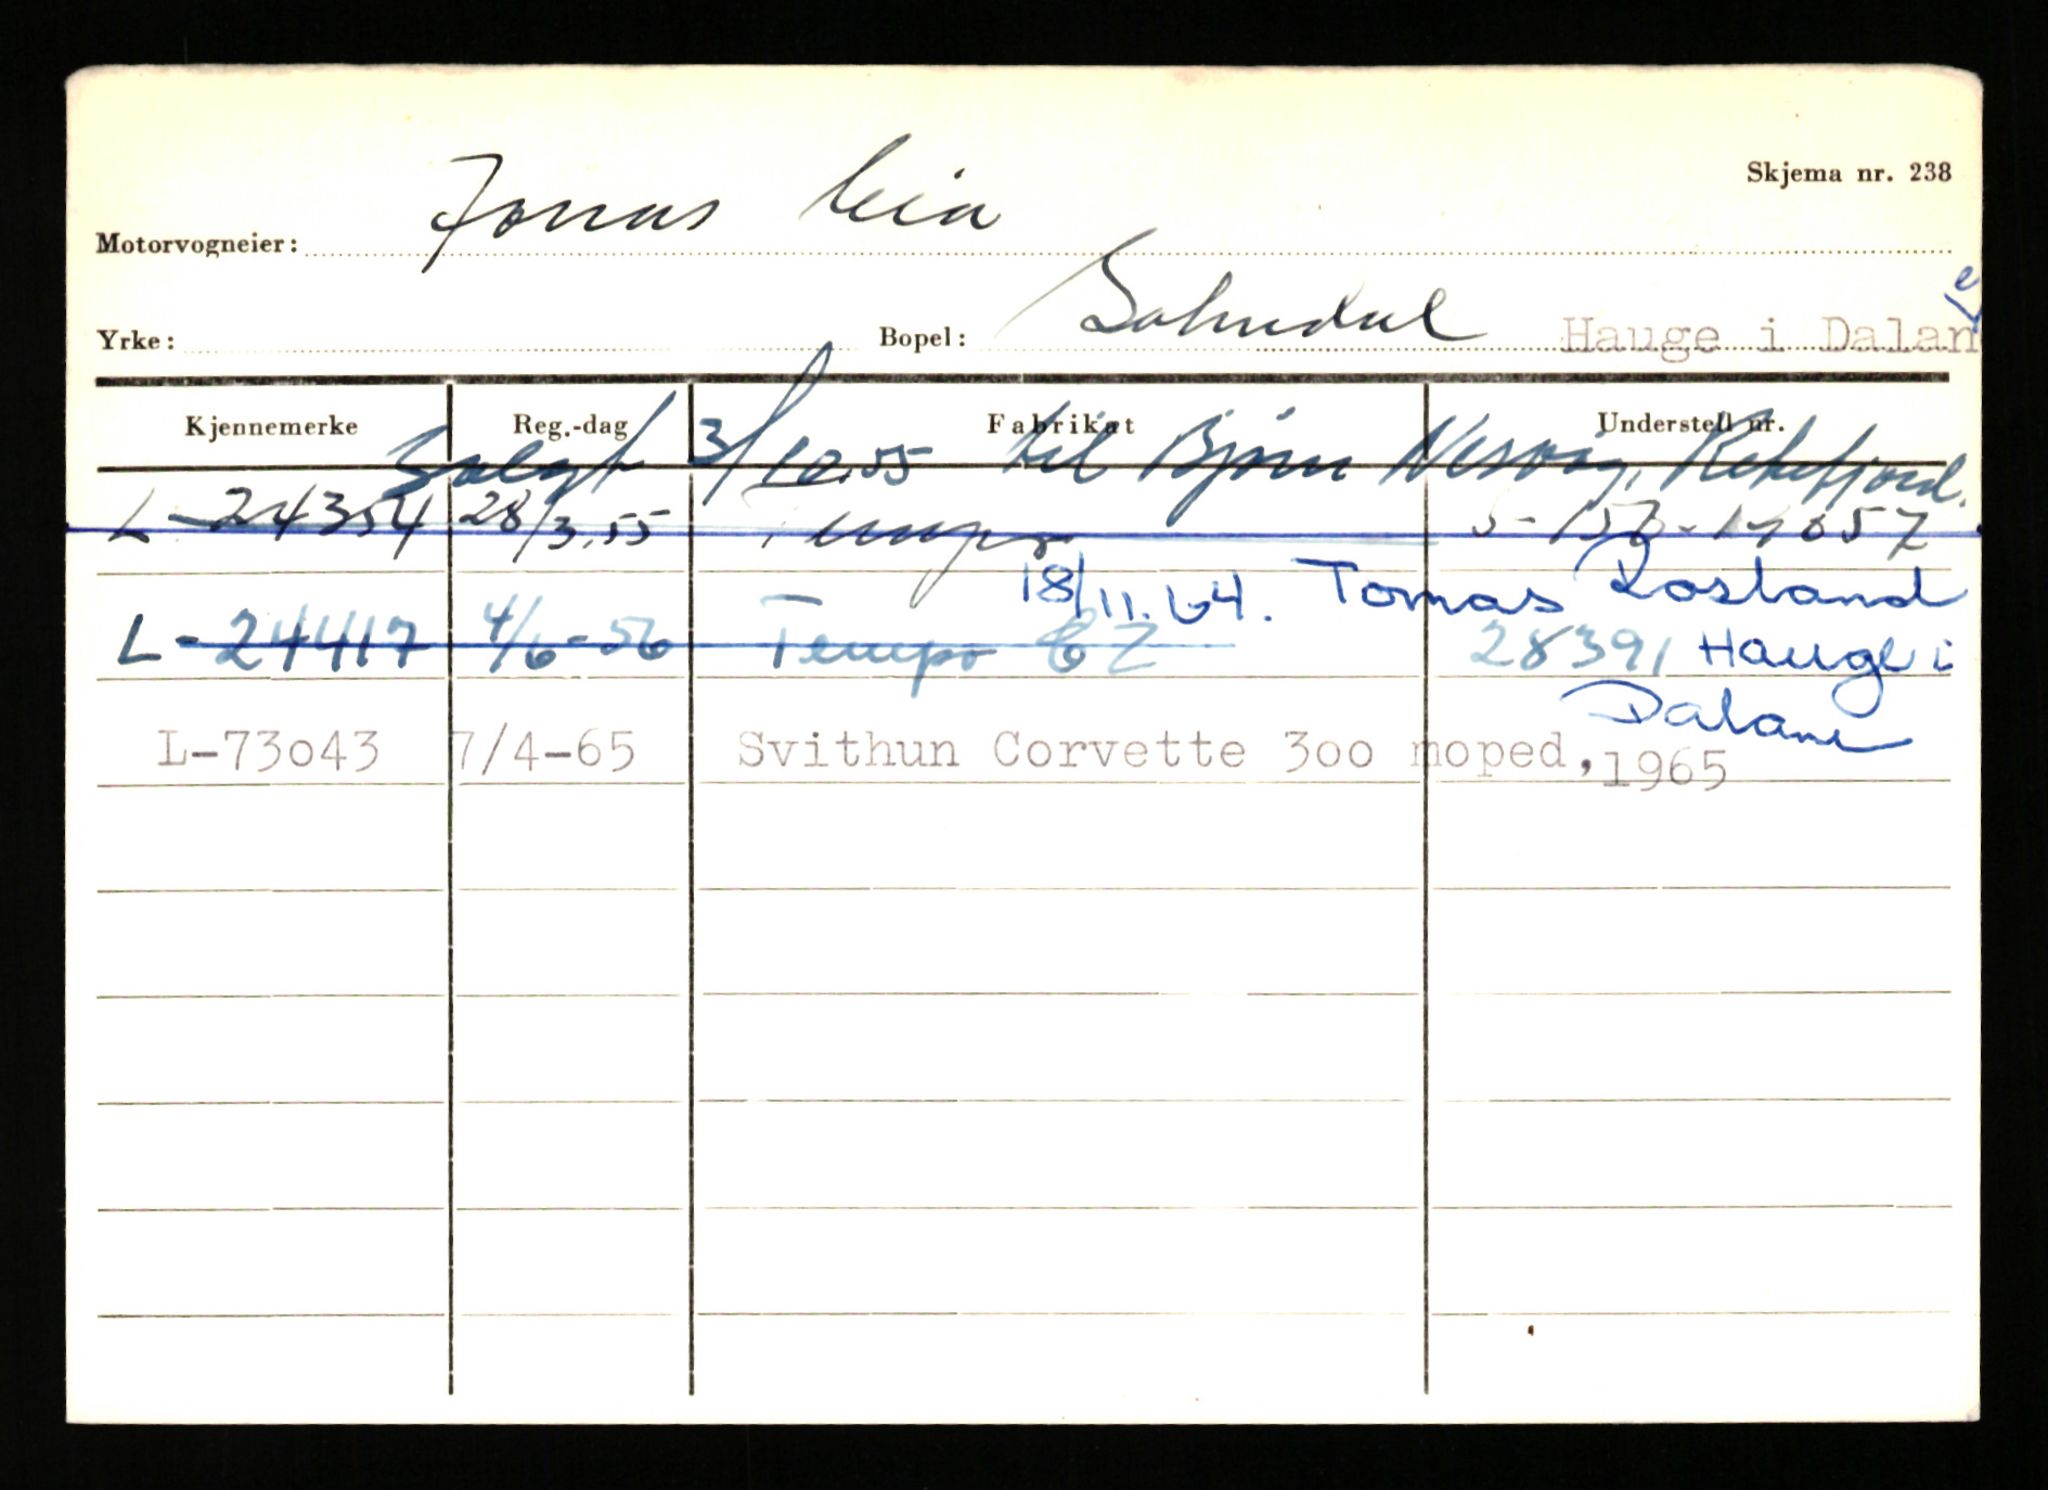 Skjema nr. 238
Motorvogneier: Jonas Eia
Yrke: Bopel: Sokndal Hauge i Dalane
Kjennemerke Reg.-dag Fabrikat Understell nr.
Solgt 3/10.55 til Bjørn Nesvåg, Rekefjord.
L-24354 28/3.55 Tempo
18/11.64. Tomas Rosland
L-24417 4/6-56 Tempo CZ 28391 Hauge i
Dalane
L-73o43 7/4-65 Svithun Corvette 3oo moped, 1965